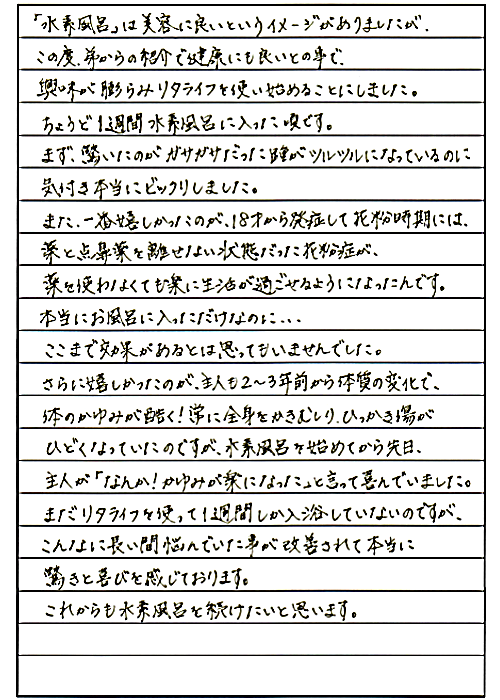 「水素風呂」は美容に良いというイメージがありましたが、
この度、弟からの紹介で健康にも良いとの事で、
興味が膨らみリタライフを使い始めることにしました。
ちょうど1週間水素風呂に入った頃です。
まず、驚いたのがガサガサだった踵がツルツルになっているのに
気付き本当にビックリしました。
また、一番嬉しかったのが、18才から発症して花粉時期には、
薬と点鼻薬を離せない状態だった花粉症が、
薬を使わなくても楽に生活が過ごせるようになったんです。
本当にお風呂に入っただけなのに...
ここまで効果があるとは思ってもいませんでした。
さらに嬉しかったのが、主人も2～3年前から体質の変化で、
体のかゆみが酷く!常に全身をかきむしり、ひっかき傷が
ひどくなっていたのですが、水素風呂を始めてから先日、
主人が「なんか!かゆみが楽になった」と言って喜んでいました。
まだリタライフを使って1週間しか入浴していないのですが、
こんなに長い間悩んでいた事が改善されて本当に
驚きと喜びを感じております。
これからも水素風呂を続けたいと思います。